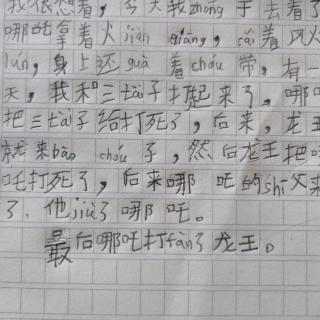 我很想看，今天我zhōng于去看了
哪吒拿着火jiān qiāng，cǎi着风火
lún，身上还guà着chóu带，有一
天，我和三tài子打起来了，哪吒
把三tài子给打死了，后来，龙王
就来bào chóu子，然后龙王把哪
吒打死了，后来哪吒的shī父来
了．他jiù了哪吒。
最后哪吒打fān了龙王。